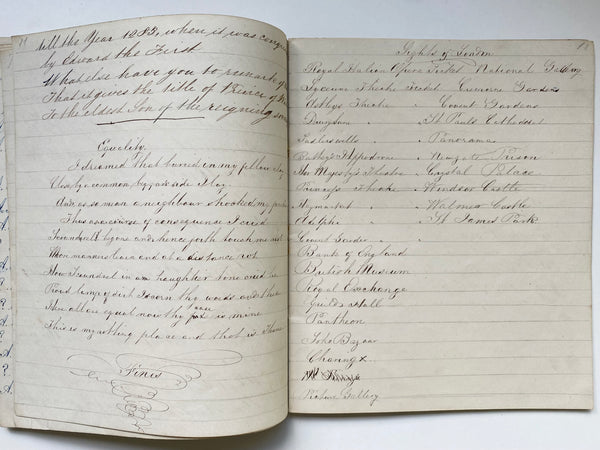 till the Year 1283, when it was conque
by Edward the First
What else have you to remark of
That it gives the title of Prince of
to the eldest Son of the reigning
Equality.
I dreamed That buried in my fellow clay
Close by a common by side I lay
And as so mean a neighbour shocked my pride
Thus as a corse of consequence I cried
Scoundrel begone and hence forth touch me not
More manners learn and at a distance rot
How Scoundrel in an haughtier tone cried he
Proud lump of dirt I scorn thy words and thee
Here all are equal now thy case is mine
This is my rotting place and that is Thine
Finis
Sights of London
Royal Italian Opera Ticket National Gallery
Lyceum Theatre Ticket Cremorne Gardens
Astleys Theatre " Covent Gardens
" St Pauls Cathedral
" Panorama
Battys Hippodrome " Newgate Prison
Her Majestys Theatre " Crystal Palace
Princess Theatre " Windsor Castle
Haymarket " Walmer Castle
Adelphi " St James Park
Covent Garden "
Bank of England
British Museum
Royal Exchange
Guild Hall
Pantheon
Soho Bazaar
Charing X
Picture Gallery